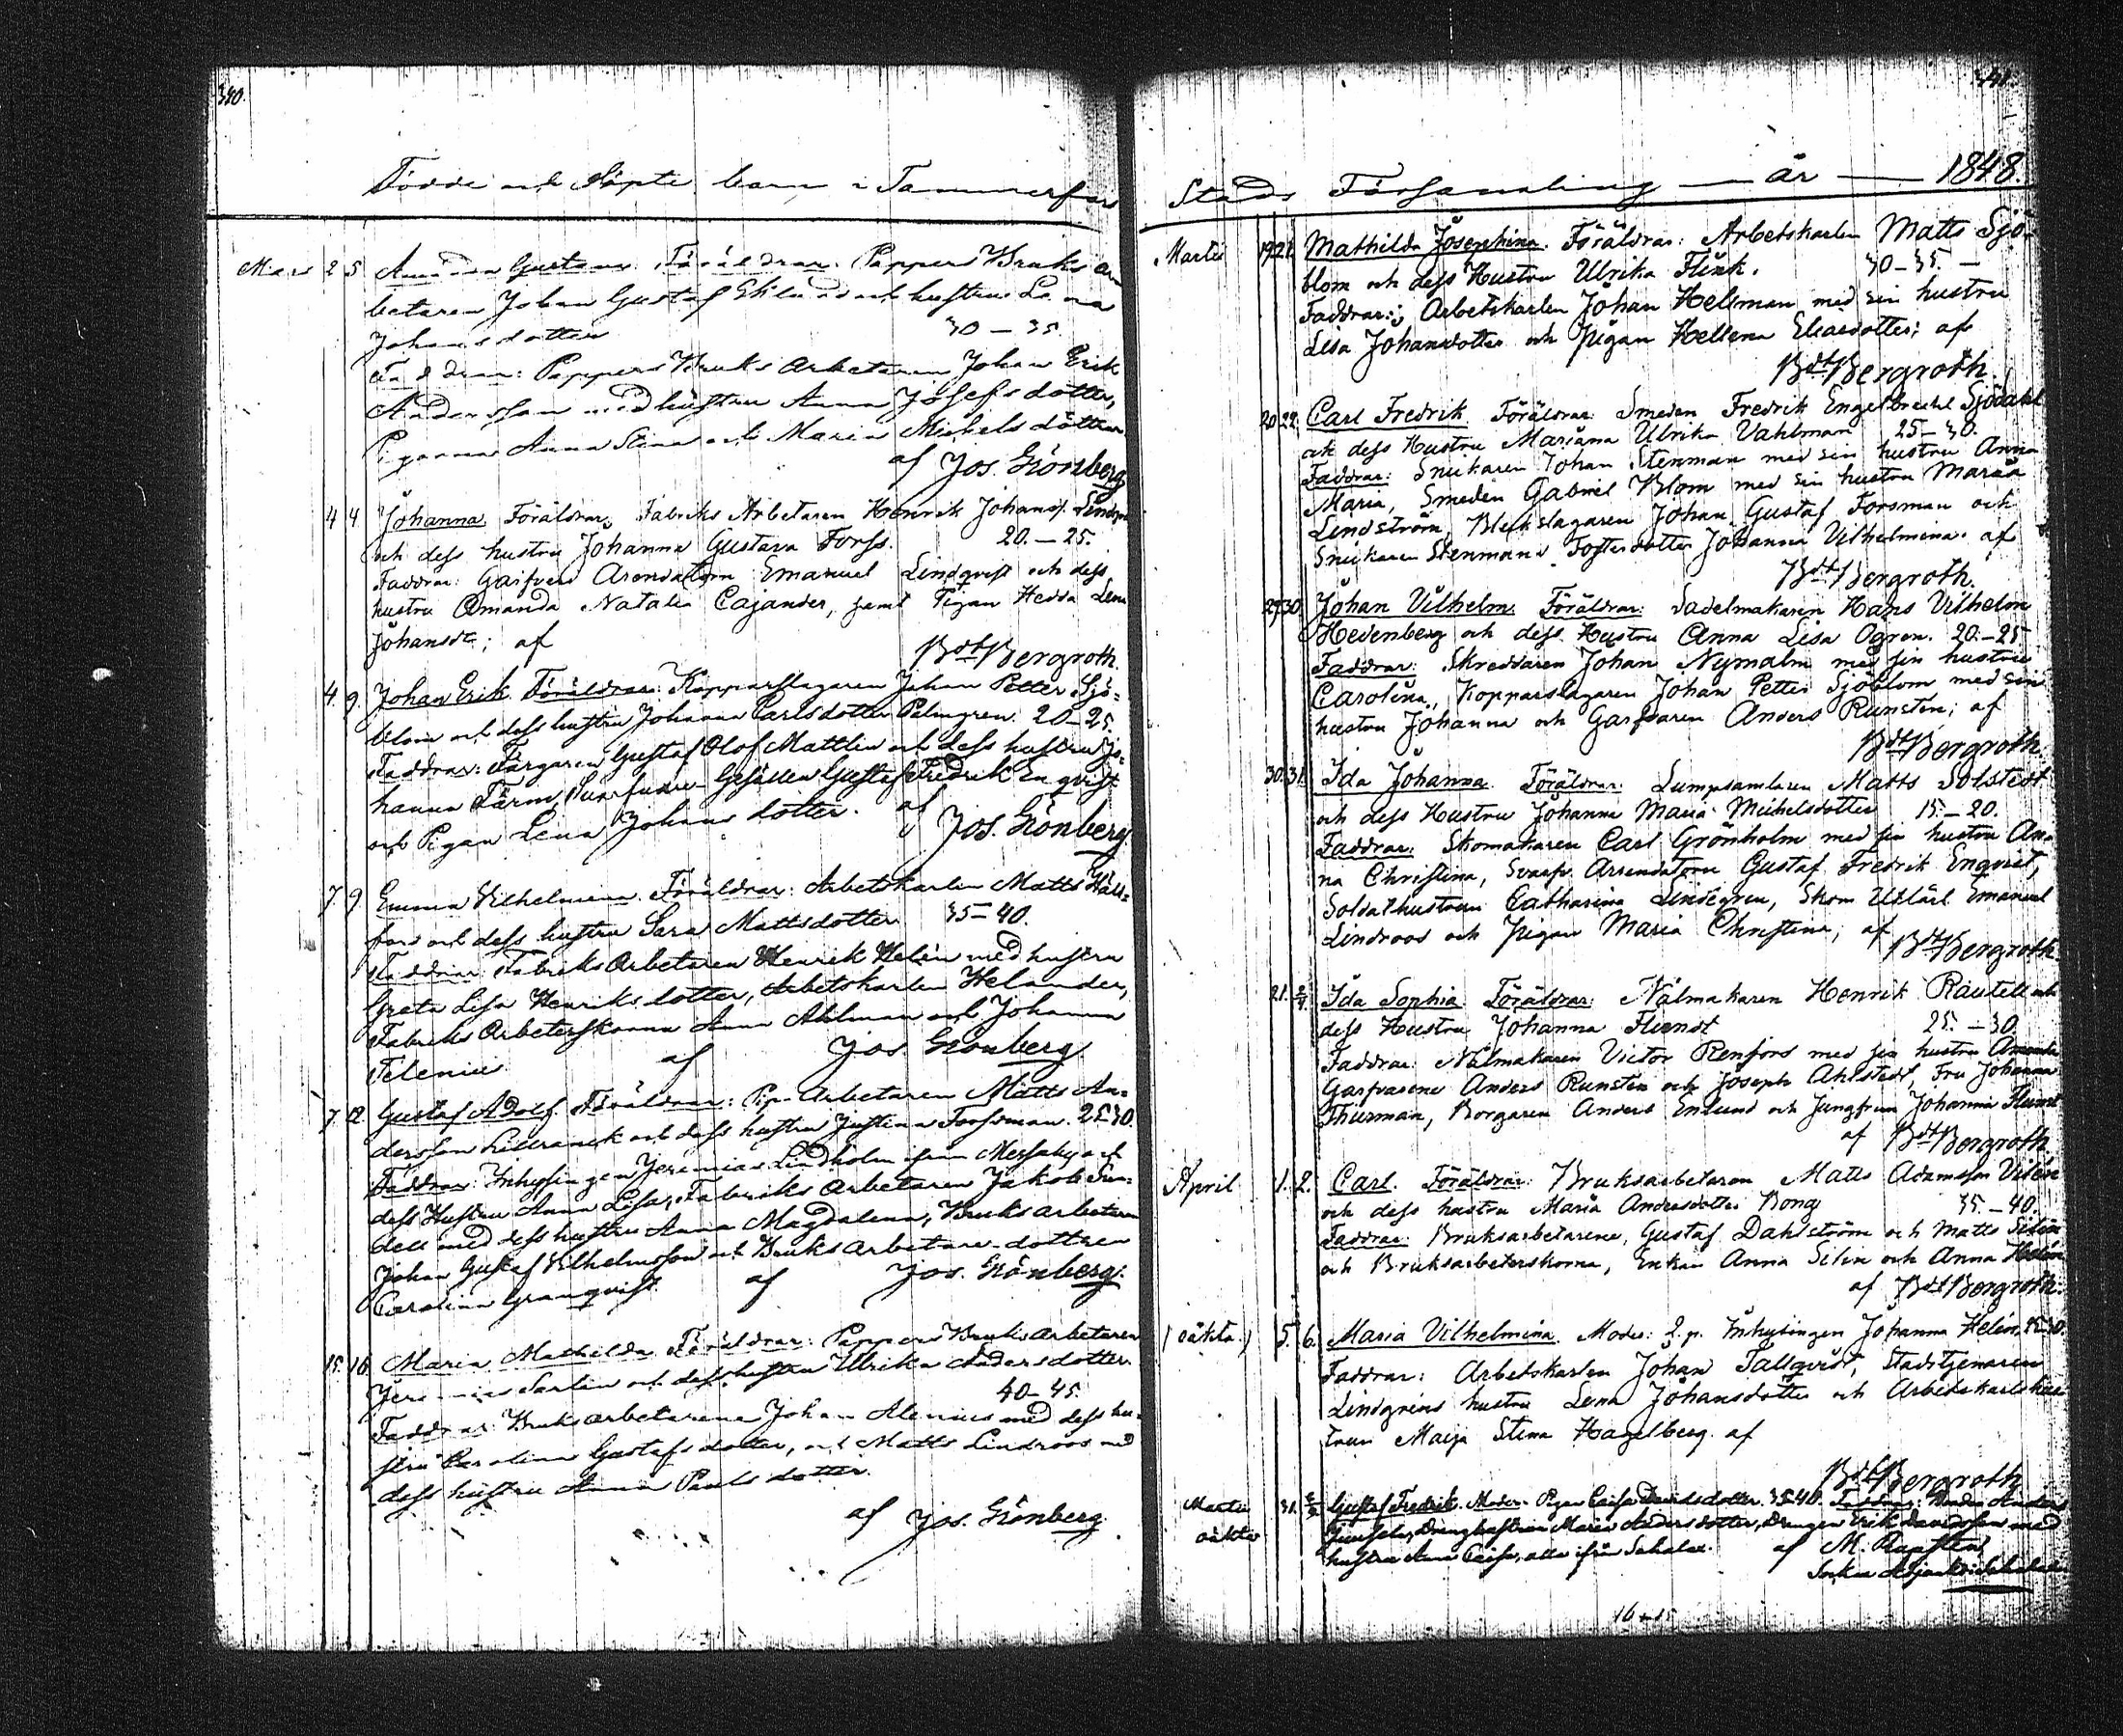 340.
Födde och döpte barn i Tammerfors
Mars 2 5 Amanda Gustava. Föräldrar: Pappers Bruks ar
betaren Johan Gustaf Eklund och hustru Lena
Johansdotter 30 – 35.
Faddrar: Pappers Bruks Arbetaren Johan Erik
Andersson med hustru Anna Josefsdotter,
Pigorna Anna Stina och Maria Michelsdötter
af Jos. Grönberg
4 4 Johanna. Föräldrar: Fabriks Arbetaren Henrik Johansſ.
och deſs hustru Johanna Gustava Forſs. 20. – 25.
Faddrar: Garfveri Arendatorn Emanuel Lindqvist och deſs
hustru Amanda Natalia Cajander, samt Pigan Hedda Lena
Johansdr; af
Bdt Bergroth.
4. 9. Johan Erik. Föräldrar: Kopparslagaren Johan Petter Sjö=
blom och deſs hustru Johanna Carlsdotter Palmgren. 20–25.
Faddrar: Färgaren Gustaf Olof Mattlin och deſs hustru Jo=
hanna Färm, Gesällen Gustaf Fredrik Enqvist
och Pigan Lena Johansdotter. af Jos. Grönberg.
7 9 Emma Vilhelmina. Föräldrar: Arbetskarlen Matts Häll=
fors och deſs hustru Sara Mattsdotter 35–40.
Faddrar: Fabriks Arbetaren Henrik Helin med hustru
Greta Lisa Henriksdotter, Arbetskarlen Helander,
Fabriks Arbeterskorna Anna Ahlman och Johanna
Felenius. af Jos. Grönberg
7. 12. Gustaf Adolf. Föräldrar: Pp. Arbetaren Matts An=
dersson och deſs hustru Justina Forssman. 25–30.
Faddrar: Inhysingen Jeremias Lindholm ifrån Messuby och
deſs Hustru Anna Lisa, Fabriks Arbetaren Jakob Sun=
dell med deſs hustru Anna Magdalena, Bruks arbetaren
Johan Gustaf Vilhelmsson och Bruks Arbetare-dottren
Carolina Granqvist. af Jos. Grönberg.
15. 16. Maria Mathilda. Föräldrar: Pappers Bruks Arbetaren
Jeremias Sarlin och deſs hustru Ulrika Andersdotter.
40–45.
Faddrar: Bruks arbetarena Johan Alenius med deſs hu-
stru Carolina Gustafsdotter, och Matts Lindroos med
deſs hustru Anna Paulsdotter.
af Jos. Grönberg
341.
Stads Församling — år — 1848.
Martii 19 21. Mathilda Josephina. Föräldrar: Arbetskarlen Matts Sjö-
blom och deſs Hustru Ulrika Flink. 30–35. –
Faddrar: Arbetskarlen Johan Hellman med sin hustru
Lisa Johansdotter och pigan Hellena Eliasdotter; af
Bdt Bergroth.
20 22. Carl Fredrik. Föräldrar: Smeden Fredrik Engelbrecht Sjödahl
och deſs Hustru Mariana Ulrika Vahlman 25–30.
Faddrar: Snickaren Johan Stenman med sin hustru Anna
Maria, Smeden Gabriel Blom med sin hustru Maria
Lindström, Bleckslagaren Johan Gustaf Forsman och
Snickaren Stenmans Fosterdotter Johanna Vilhelmina. af
Bdt Bergroth.
29 30 Johan Vilhelm. Föräldrar: Sadelmakaren Hans Vilhelm
Hedenberg och deſs Hustru Anna Lisa Ogren. 20–25
Faddrar: Skreddaren Johan Nymalm med sin hustru
Carolina, Kopparslagaren Johan Petter Sjöblom med sin
hustru Johanna och Garfvaren Anders Runsten; af
Bdt Bergroth.
30. 31. Ida Johanna. Föräldrar: Lumpsamlaren Matts Solstedt
och deſs Hustru Johanna Maria Michelsdotter 15.–20.
Faddrar: Skomakaren Carl Grönholm med sin hustru An-
na Christina, Svarfv. Arrendatorn Gustaf Fredrik Enqvist,
Soldathustrun Catharina Lindegren, Skom Utlärl Emanuel
Lindroos och pigan Maria Christina; af
Bdt Bergroth.
21. 2/4 Ida Sophia. Föräldrar: Nålmakaren Henrik Rautell och
deſs Hustru Johanna Flundt 25. – 30.
Faddrar: Nålmakaren Victor Renfors med sin hustru Amanda
Garfvarene Anders Runsten och Joseph Ahlstedt, Fru Johanna
Thurman, Borgaren Anders Enlund och Jungfrun Johanna Flundt
af Bdt Bergroth
April 1. 2. Carl. Föräldrar: Bruksarbetaren Matts Adamsson Vilén
och deſs hustru Maria Andersdotter Bong 35.–40.
Faddrar: Bruksarbetarene, Gustaf Dahlström och Matts Silin
och Bruksarbeterskorna, Enkan Anna Silin och Anna Helin
af Bdt Bergroth.
(oäkta.) 5. 6. Maria Vilhelmina. Moder: Inhysingen Johanna Helin,
Faddrar: Arbetskarlen Johan Tallqvist, Stadstjenaren
Lindgrens hustru Lena Johansdotter och Arbetskarlshus-
trun Maija Stina Hagelberg. af
Bdt Bergroth
Martii oäkta 31. Gustaf Fredrik. Moder: Pigan Caisa Davidsdotter. 35–40. Faddrar: Anders
Drenghustrun Maria Andersdotter, Drengen Erik Davidsson med
hustru Anna Caisa, alla ifrån Sahalax. af M. Rapsten
16 – 15